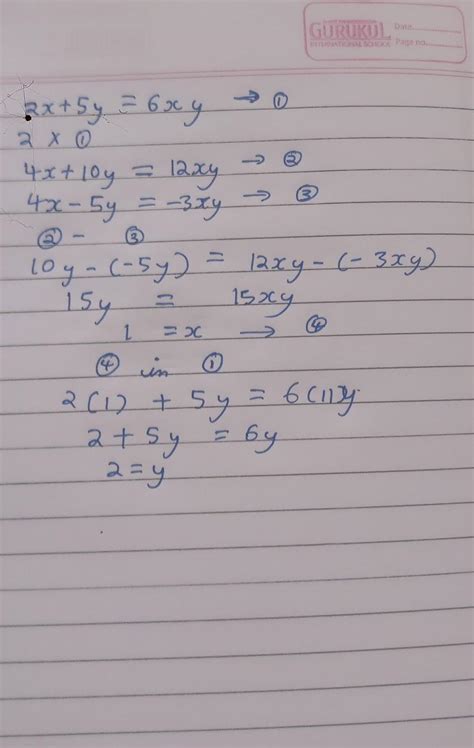 GURUKUL
INTERNATIONAL SCHOOL
Date
Page no.
2x+5y = 6xy → ①
2 x ①
4x+10y = 12xy → ②
4x-5y = -3xy → ③
② - ③
10y-(-5y) = 12xy-(-3xy)
15y = 15xy
1 = x → ④
④ in ①
2(1) + 5y = 6(1)y
2+5y = 6y
2=y